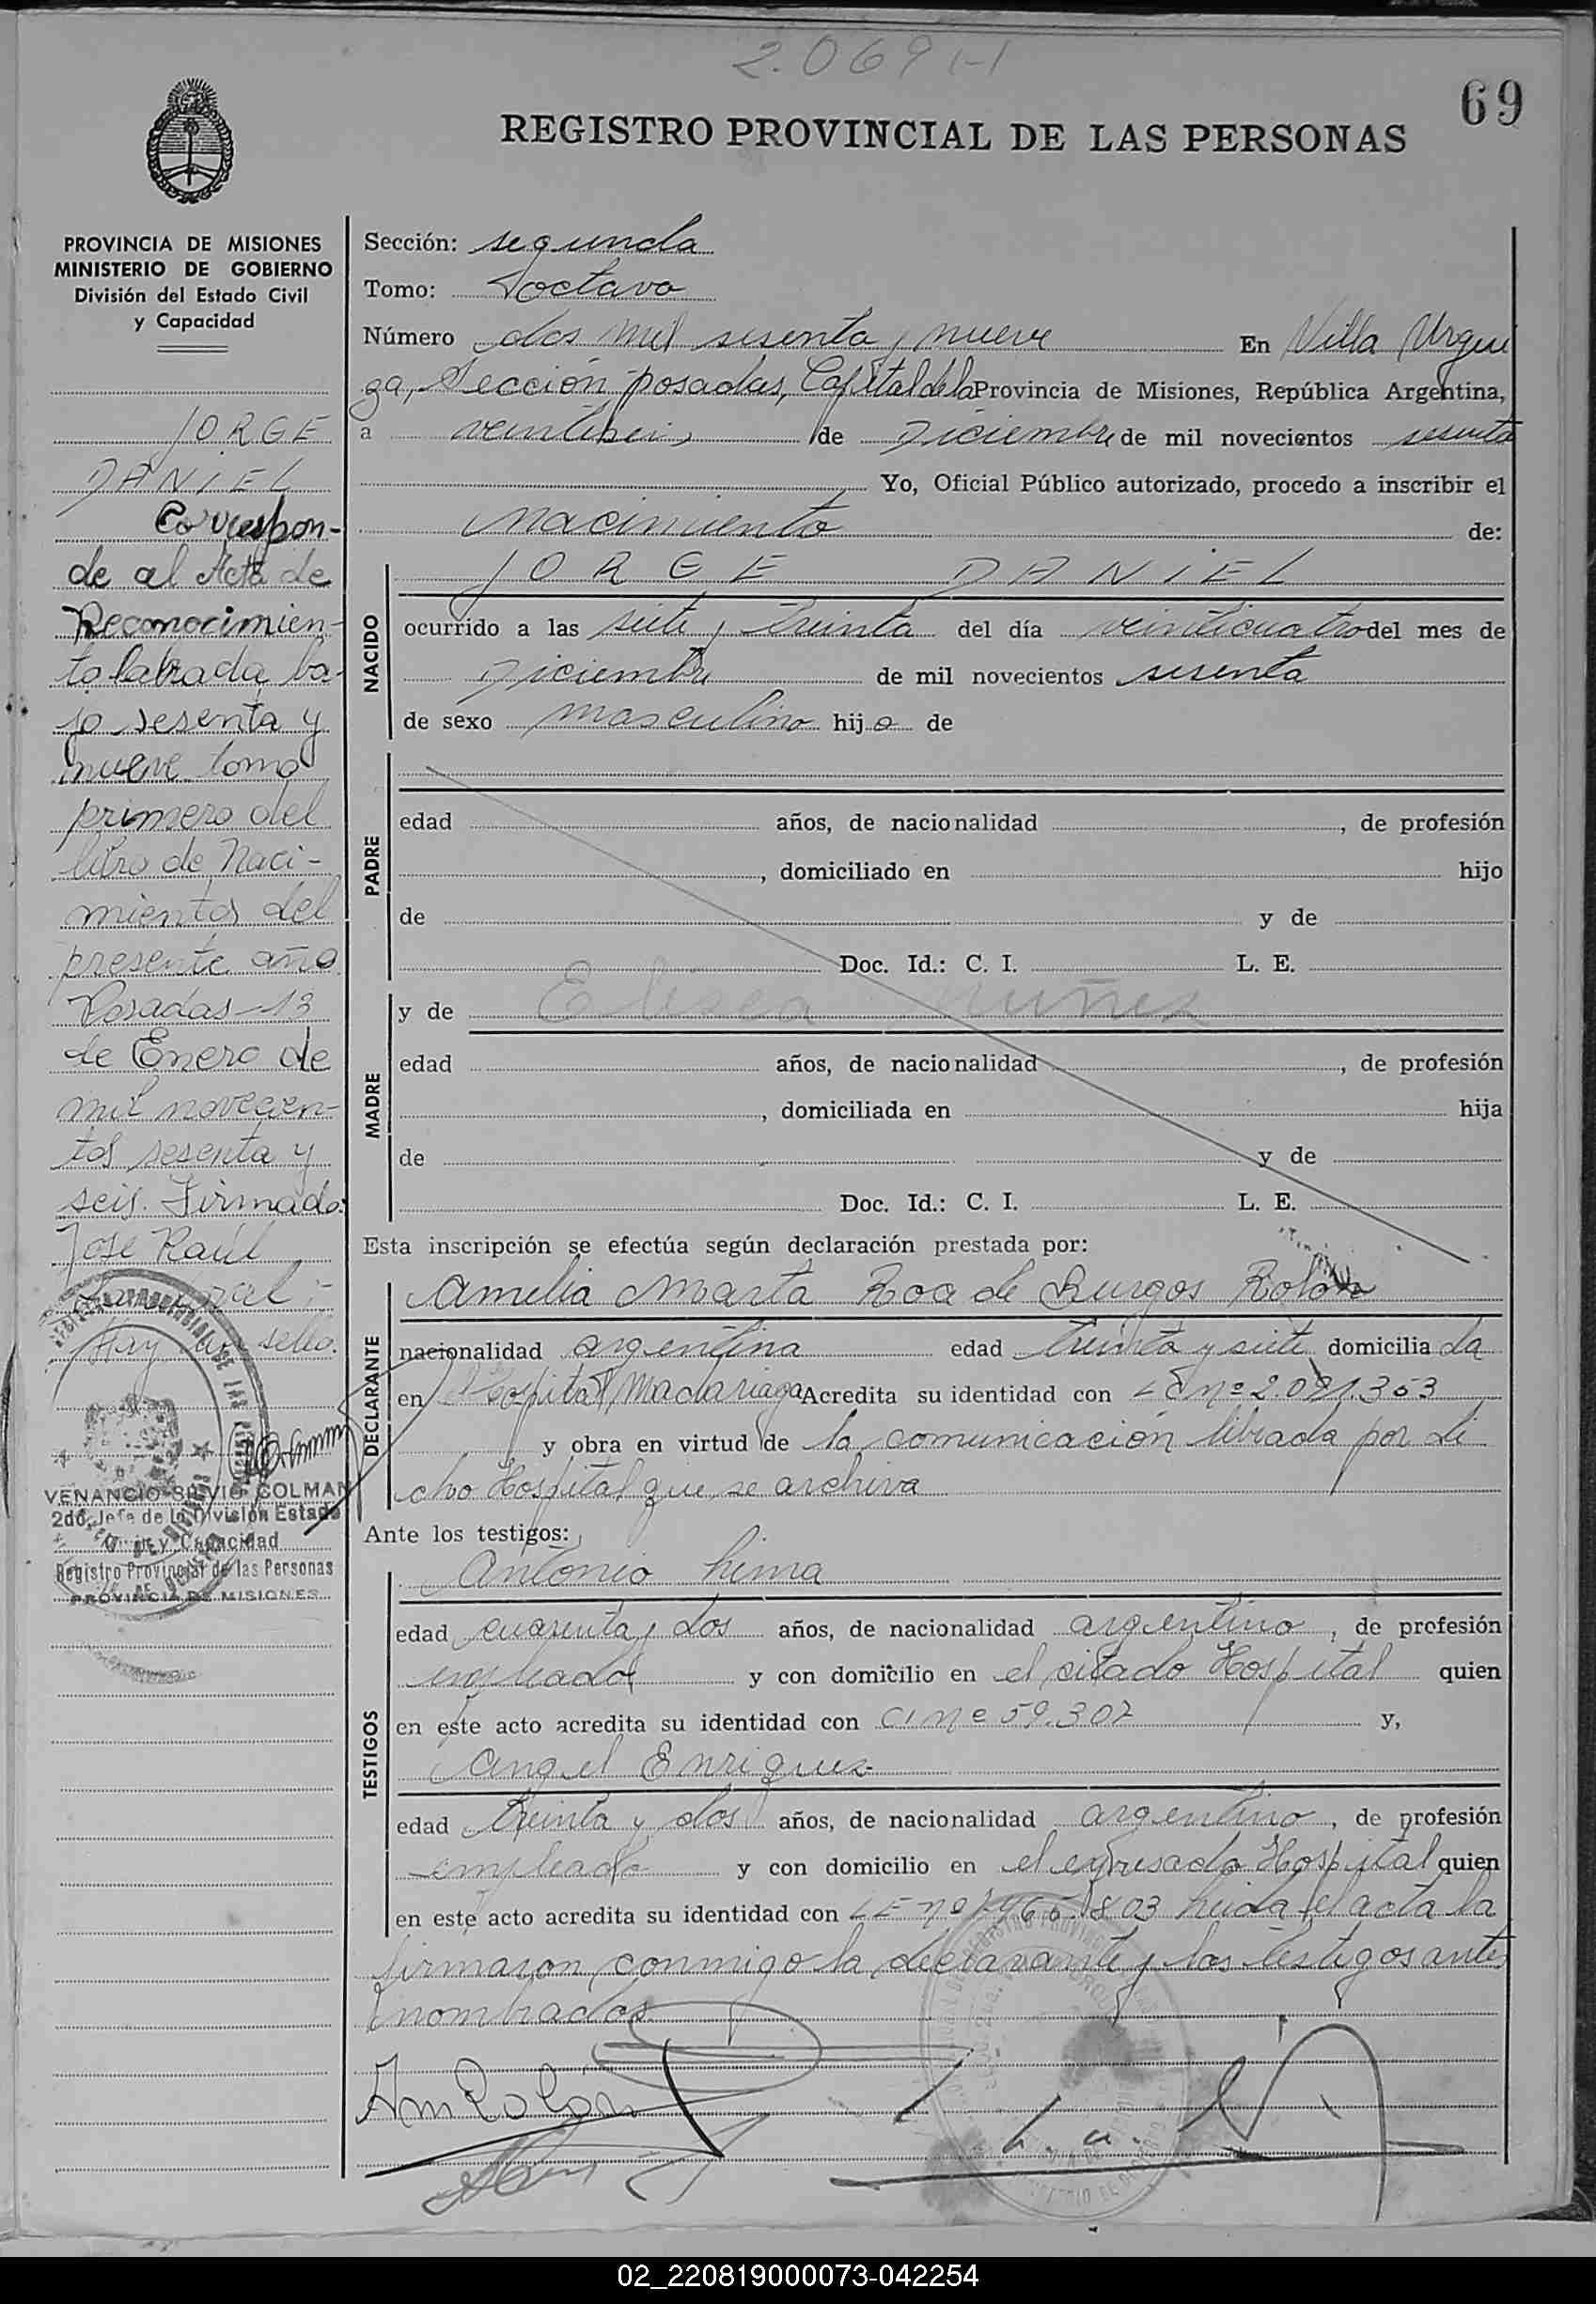 2.069
69
REGISTRO PROVINCIAL DE LAS PERSONAS
PROVINCIA DE MISIONES
MINISTERIO DE GOBIERNO
División del Estado Civil
y Capacidad
JORGE
DANIEL
Correspon-
de al Acta de
Reconocimien-
to labrada ba-
jo sesenta y
nueve tomo
primero del
libro de Naci-
mientos del
presente año
Posadas-13
de Enero de
mil novecien-
tos sesenta y
seis. Firmado:
José Raúl
Hay un sello.
VENANCIO SILVIO COLMAN
2do. Jefe de la División Estado
Civil y Capacidad
Registro Provincial de las Personas
PROVINCIA DE MISIONES
Sección: segunda
Tomo: octavo
Número dos mil sesenta y nueve En Villa Urqui
za, Sección posadas, Capital de la Provincia de Misiones, República Argentina,
a veintiseis de Diciembre de mil novecientos sesenta
Yo, Oficial Público autorizado, procedo a inscribir el
nacimiento de:
NACIDO
JORGE DANIEL
ocurrido a las siete y treinta del día veinticuatro del mes de
Diciembre de mil novecientos sesenta
de sexo masculino hijo de
PADRE
edad años, de nacionalidad , de profesión
, domiciliado en hijo
de y de
Doc. Id.: C. I. L. E.
MADRE
y de Elisea Nuñez
edad años, de nacionalidad , de profesión
, domiciliada en hija
de y de
Doc. Id.: C. I. L. E.
Esta inscripción se efectúa según declaración prestada por:
DECLARANTE
Amelia Marta Roa de Burgos Rolon
nacionalidad argentina edad treinta y siete domiciliada
en el Hospital Madariaga Acredita su identidad con LC nº 2.091.353
y obra en virtud de la comunicación librada por di
cho Hospital que se archiva
Ante los testigos:
TESTIGOS
Antonio Lima
edad cuarenta y dos años, de nacionalidad argentino, de profesión
empleado y con domicilio en el citado Hospital quien
en este acto acredita su identidad con CI nº 59.307 y,
Angel Enriquez
edad treinta y dos años, de nacionalidad argentino, de profesión
empleado y con domicilio en el expresado Hospital quien
en este acto acredita su identidad con LE nº 803 leida el acta la
firmaron conmigo la declarante y los testigos antes
nombrados.
Am Rolón
02_220819000073-042254